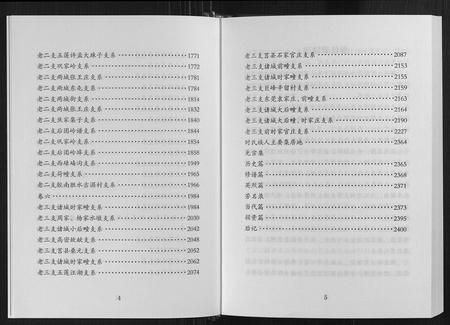 老二支五莲许孟大珠子支系 1771
老二支巩家岭支系 1772
老二支两城张王庄支系 1781
老二支两城东屯支系 1784
老二支两城街支系 1814
老二支两城张王庄支系 1832
老二支张家集子支系 1840
老二支后团岭诸支系 1844
老二支巩家岭支系 1854
老二支后团岭埠支系 1858
老二支西绿峰沟支系 1949
老二支荷疃支系 1965
老二支胶南胆水古湄村支系 1966
卷六 1984
老三支诸城时家疃支系 1984
老三支周家、杨家水坡支系 2030
老三支诸城小后疃支系 2042
老三支高密故献支系 2048
老三支莒县桑元支系 2052
老三支诸城时家疃支系 2062
老三支五莲江湖支系 2074
4
老三支莒县石家官庄支系 2087
老三支诸城前疃支系 2153
老三支诸城时家疃支系 2155
老三支巨峰辛留村支系 2159
老三支东莞袁家庄、前疃支系 2163
老三支诸城大后疃支系 2164
老三支诸城后疃、时家庄支系 2190
老三支前时家官庄支系 2227
时氏族人主要集居地 2364
光宗集
历史篇 2365
修谱篇 2368
英烈篇 2371
芳名录
当代篇 2373
捐资篇 2395
后记 2400
5